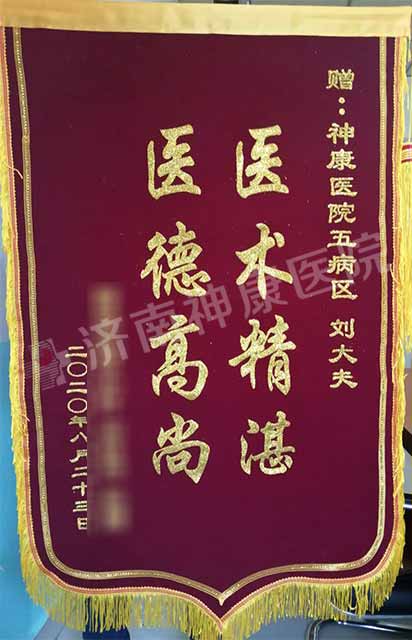 赠：神康医院五病区 刘大夫
医术精湛
医德高尚
二〇二〇年八月二十三日
济南神康医院